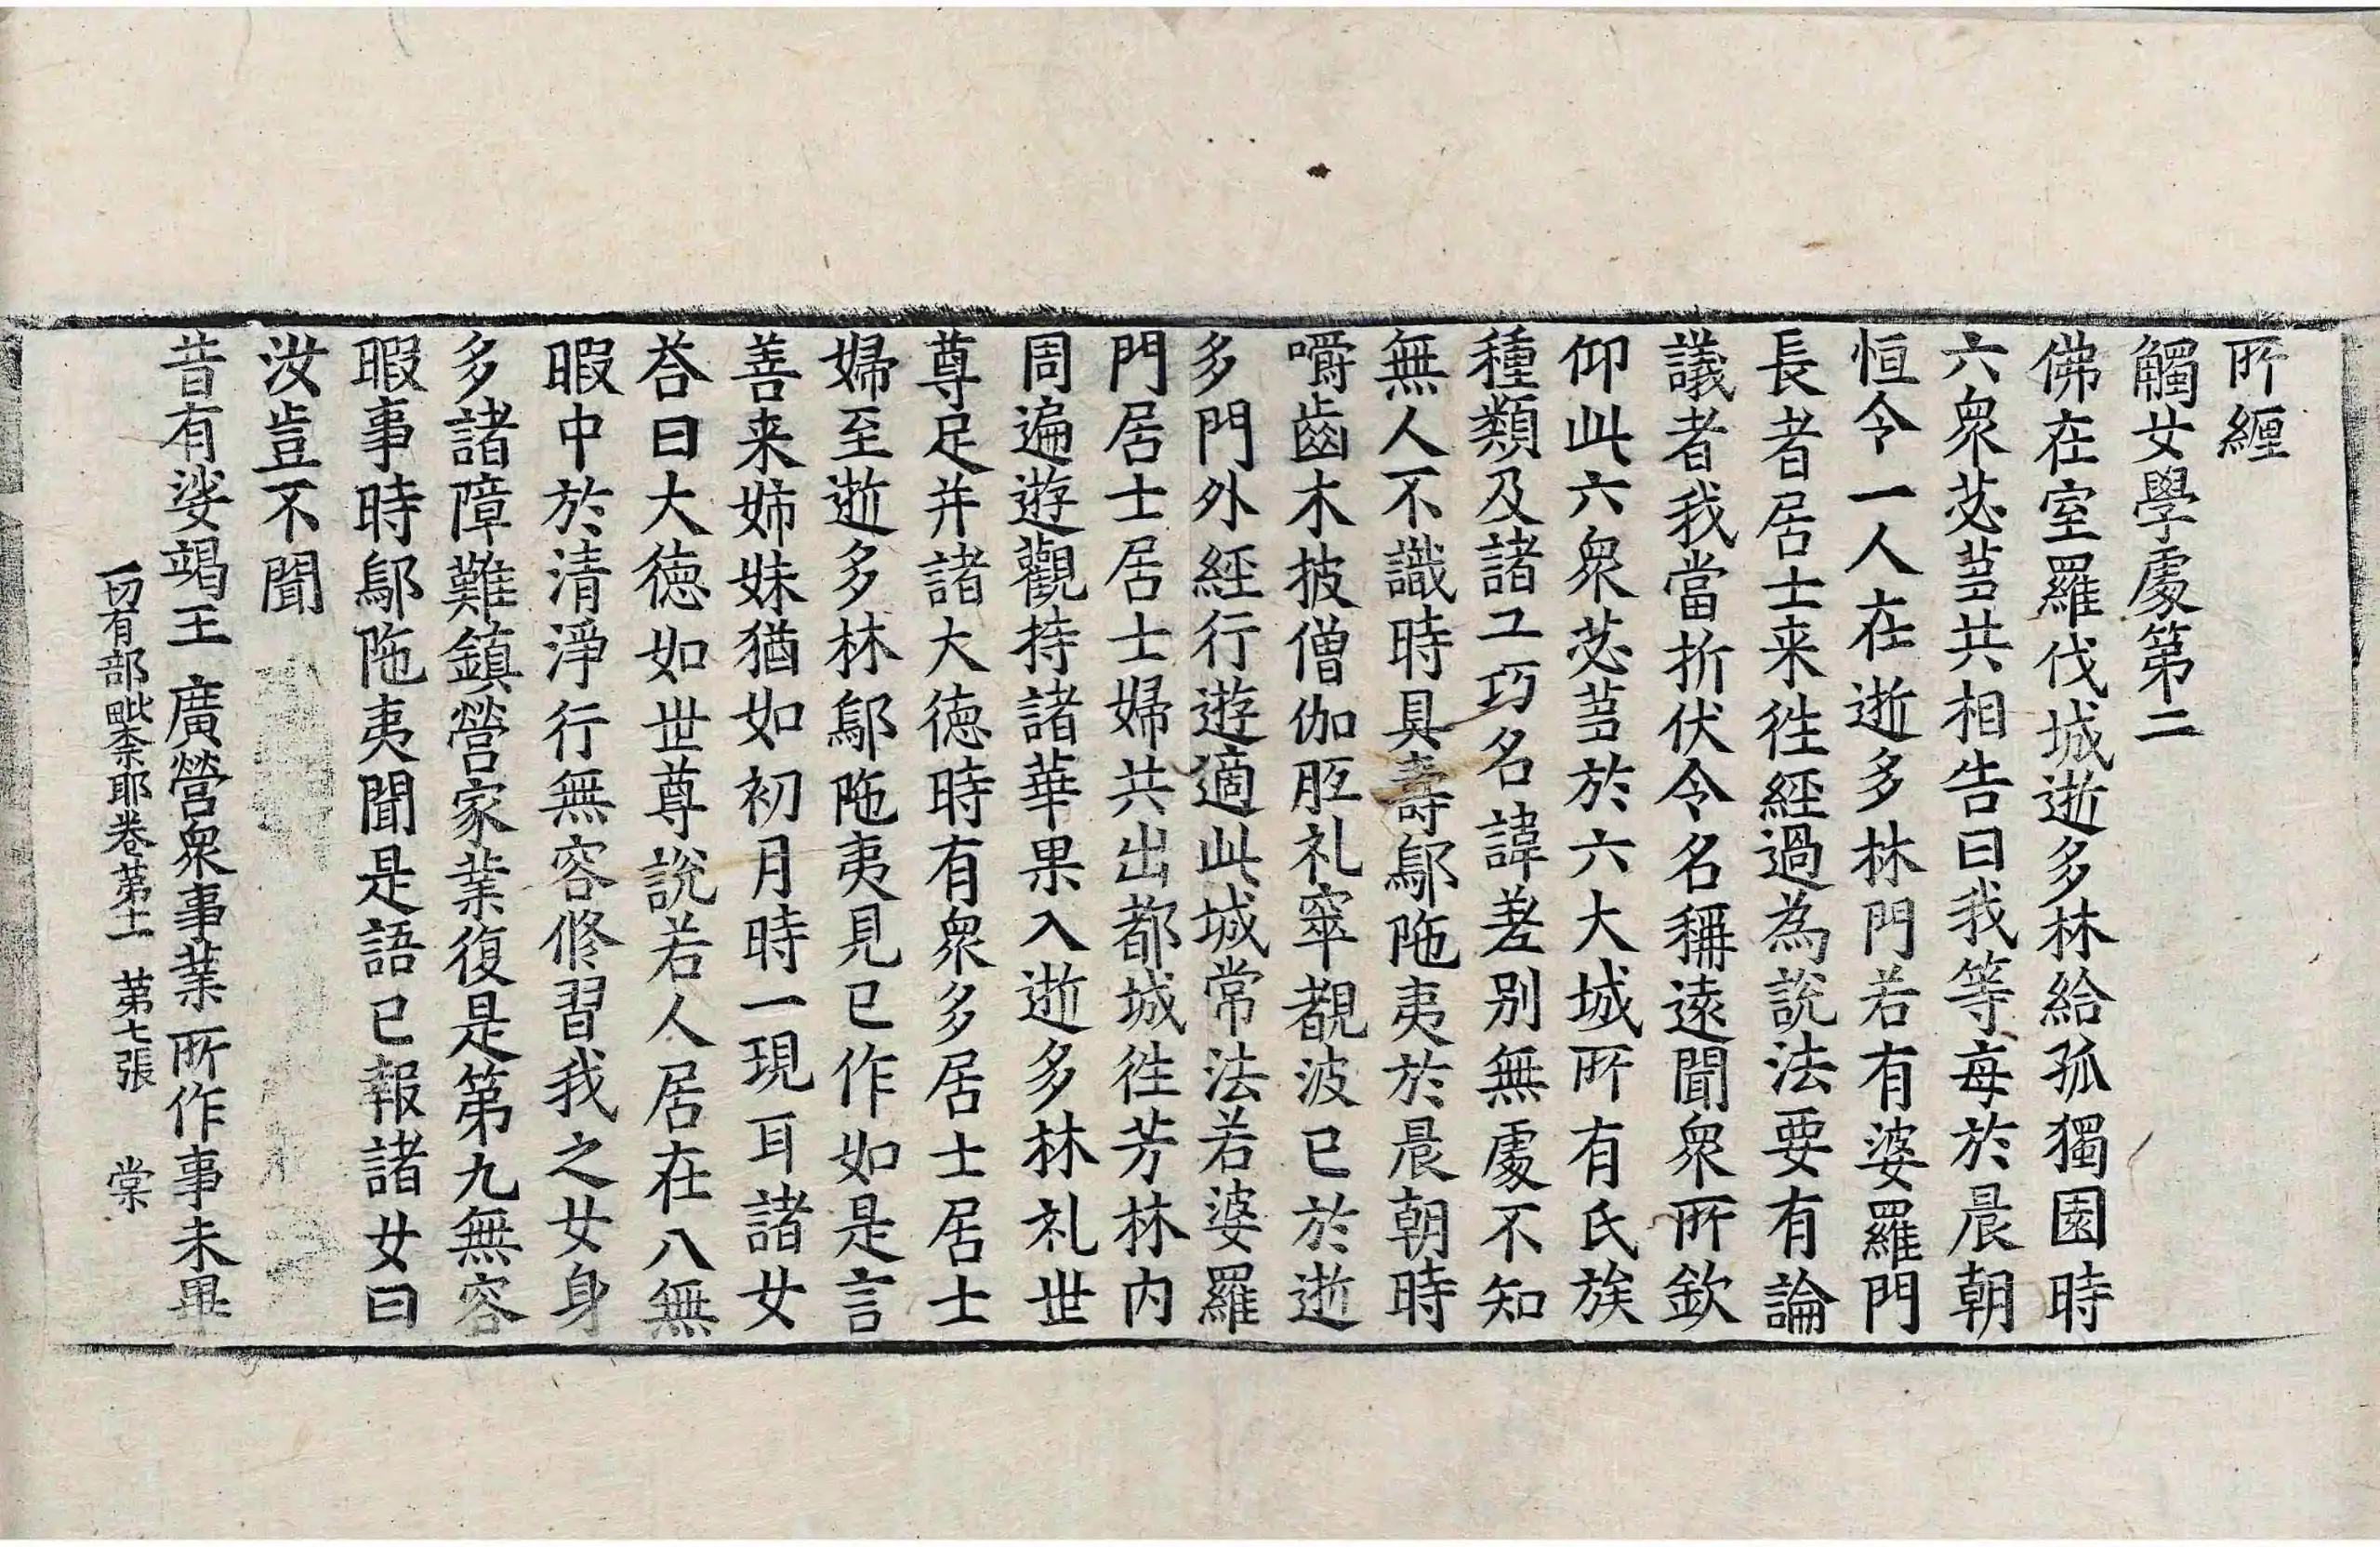 所纏
觸女學處第二
佛在室羅伐城逝多林給孤獨園時
六衆苾蒭共相告曰我等每於晨朝
恒令一人在逝多林門若有婆羅門
長者居士来徃經過為說法要有論
議者我當折伏令名稱遠聞衆所欽
仰此六衆苾蒭於六大城所有氏族
種類及諸工巧名諱差别無處不知
無人不識時具壽鄔陁夷於晨朝時
嚼齒木披僧伽胝礼窣覩波已於逝
多門外經行遊適此城常法若婆羅
門居士居士婦共出都城徃芳林內
周遍遊觀持諸華果入逝多林礼世
尊足并諸大德時有衆多居士居士
婦至逝多林鄔陁夷見已作如是言
善来姊妹猶如初月時一現耳諸女
荅曰大德如世尊說若人居在八無
暇中於清淨行無容修習我之女身
多諸障難鎮營家業復是第九無容
暇事時鄔陁夷聞是語已報諸女曰
汝豈不聞
昔有娑竭王 廣營衆事業 所作事未畢
一切有部毗奈耶卷第十一 第七張 棠